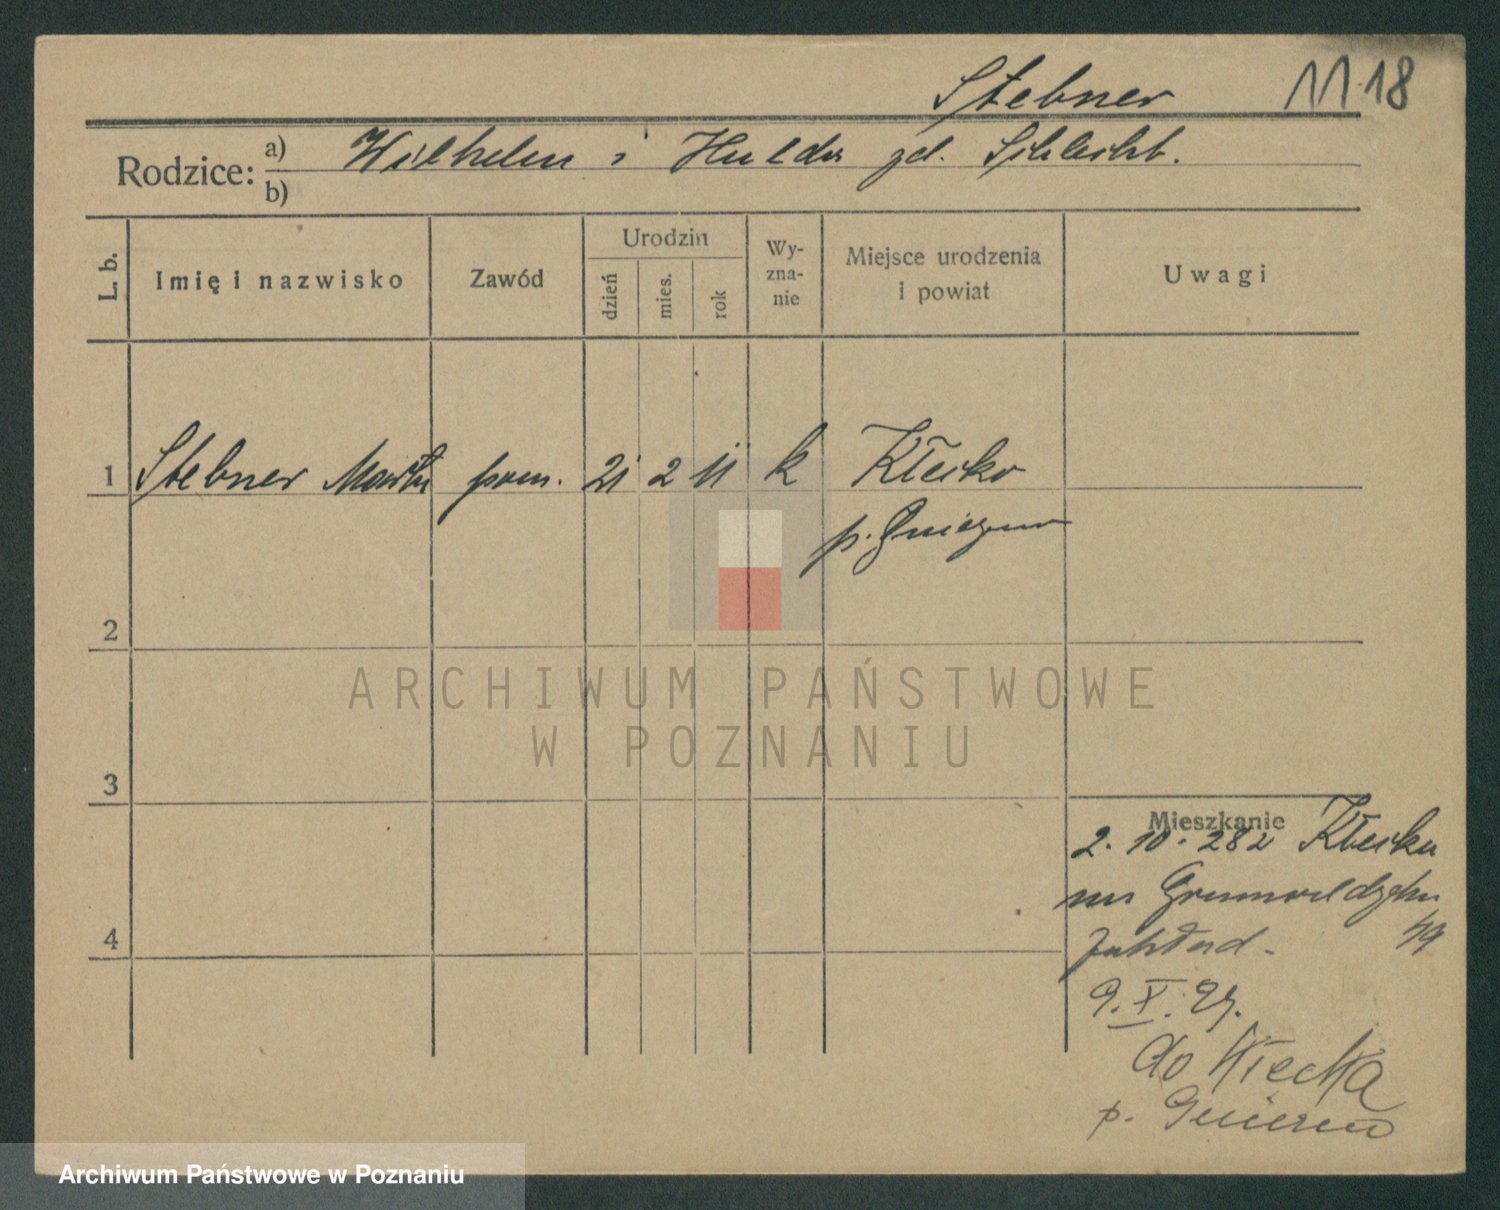 Stebner 11.18
Rodzice: a) Wilhelm i Hulda zd. Schlecht.
b)
L. b.
Imię i nazwisko
Zawód
Urodzin
dzień
mies.
rok
Wy-
zna-
nie
Miejsce urodzenia
i powiat
Uwagi
1 Stebner Marta pom. 21 2 11 k Kłecko
p. Gniezno
2
3
4
Mieszkanie
2. 10. 28 z Kłecka
na Grunwaldzka
9. X. 29.
do Kłecka
p. Gniezno
ARCHIWUM PAŃSTWOWE
W POZNANIU
Archiwum Państwowe w Poznaniu